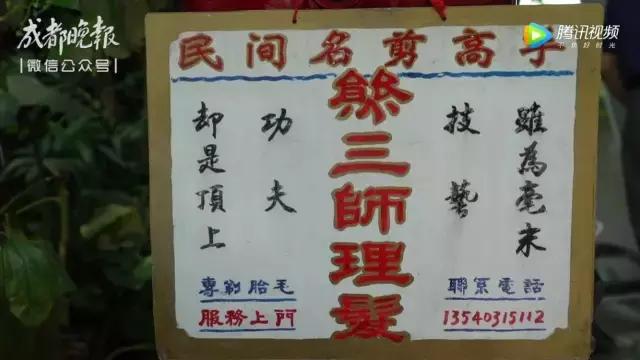 成都晚报
微信公众号
腾讯视频
不负好时光
民间名剪高手
雖為毫末
技藝
三師理髮
却是頂上
功夫
專剃胎毛
服務上門
聯系電話
13540315112